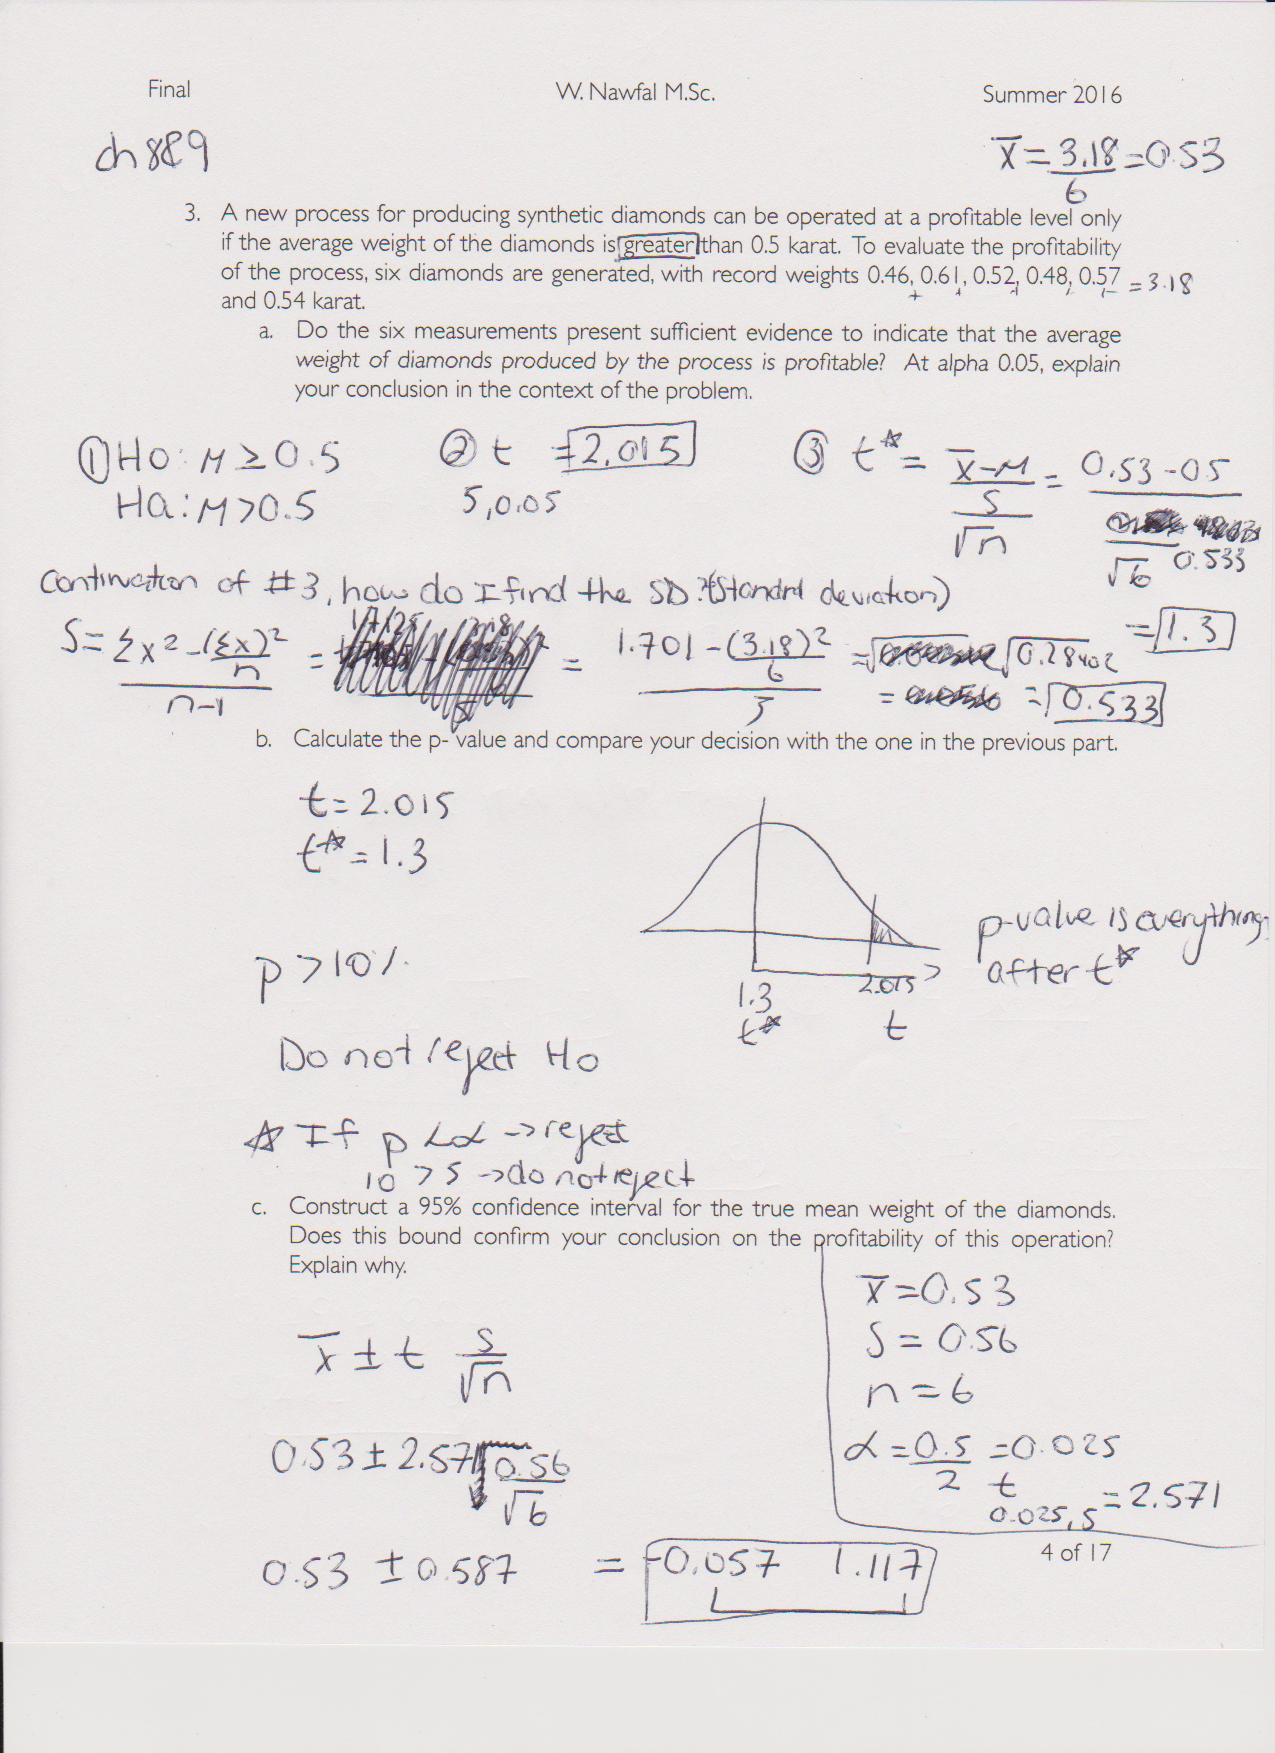 Final W. Nawfal M.Sc. Summer 2016
ch 8&9
x̄ = 3.18/6 = 0.53
3. A new process for producing synthetic diamonds can be operated at a profitable level only
if the average weight of the diamonds is greater than 0.5 karat. To evaluate the profitability
of the process, six diamonds are generated, with record weights 0.46, 0.61, 0.52, 0.48, 0.57 = 3.18
and 0.54 karat.
a. Do the six measurements present sufficient evidence to indicate that the average
weight of diamonds produced by the process is profitable? At alpha 0.05, explain
your conclusion in the context of the problem.
① Ho: M ≥ 0.5 ② t = 2.015 ③ t* = (x̄-M)/(s/√n) = (0.53-0.5)/(0.533/√6)
Ha: M > 0.5 5, 0.05
= 1.3
Continuation of #3, how do I find the SD? (Standard deviation)
S = (Σx² - (Σx)²/n)/(n-1) = = (1.701 - (3.18)²/6)/5 = √0.28402
= √0.533
b. Calculate the p- value and compare your decision with the one in the previous part.
t = 2.015
t* = 1.3
p-value is everything
after t*
p > 10%
1.3 2.015
t* t
Do not reject Ho
☆ If p < α -> reject
10 > 5 -> do not reject
c. Construct a 95% confidence interval for the true mean weight of the diamonds.
Does this bound confirm your conclusion on the profitability of this operation?
Explain why.
x̄ = 0.53
S = 0.56
n = 6
α = 0.5/2 = 0.025
t 0.025, 5 = 2.571
x̄ ± t s/√n
0.53 ± 2.571 0.56/√6
0.53 ± 0.587 = -0.057 1.117
4 of 17